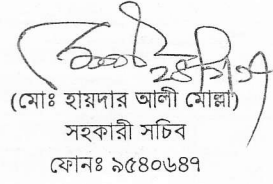 (মোঃ হায়দার আলী মোল্লা)
সহকারী সচিব
ফোনঃ ৯৫৪০৬৪৭